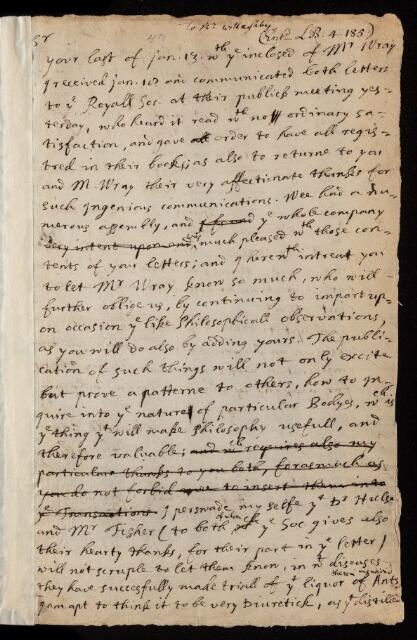 To Mr Willughby
Sr (Entd L.B. 4. 185)
your last of Jan. 13. wth ye inclosed of Mr Wray
I received Jan. and communicated both letters
to ye Royall Soc. at their publick meeting yes-
terday, who heard it read wth no ordinary sa-
tisfaction, and gave all order to have all regis-
tred in their books; as also to return to you
and M. Wray their very affectionate thanks for
such ingenious communications. Wee had a nu-
merous assembly, and I found ye whole company
very intent upon and much pleased wth those con-
tents of your letters; and I herewth intreat you
to let Mr Wray know so much, who will
further oblige us, by continuing to impart up-
on occasion ye like Philosophicall observations,
as you will do also by adding yours. The publi-
cation of such things will not only excite
but prove a patterne to others, how to in-
quire into ye nature of particular Bodyes, wch is
ye thing yt will make Philosophy usefull, and
therefore valuable; and wch requires also my
particular thanks to you both, forasmuch as
you do not forbid me to insert them into
ye Transactions. I perswade my selfe yt Dr Hulse
and Mr Fisher (to both wch ye Soc gives also
their hearty thanks, for their part in ye letter)
will not scruple to let them know, in wt diseases
they have successfully made triall of ye liquor of Ants
I am apt to think it to be very Diuretick, as ye distilled